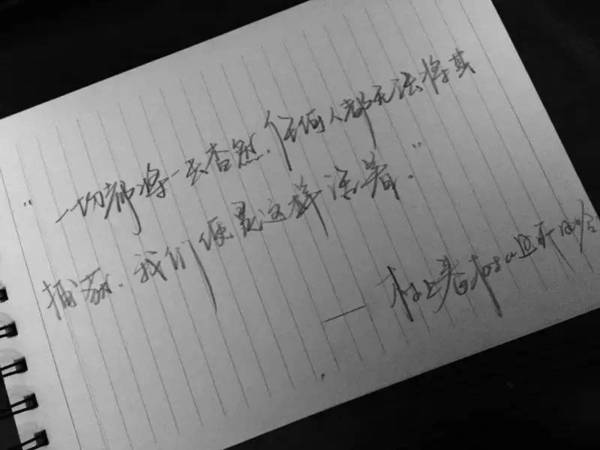 "一切都将一去杳然,任何人都无法将其
捕获.我们便是这样活着."
——村上春树《且听风吟》